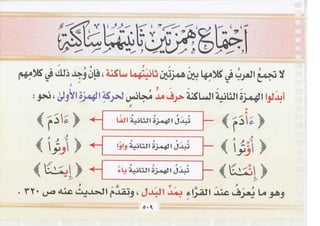 اجْتِمَاعُ هَمْزَتَيْنِ ثَانِيَتُهُمَا سَاكِنَةٌ
لا تجمعُ العربُ في كلامِها بينَ همزتَينِ ثانيَتُهما ساكنة ، فإنْ وُجِدَ ذلكَ في كلامِهم
أبدَلوا الهمزةَ الثانيةَ الساكنةَ حرفَ مدٍّ مُجانسٍ لحركةِ الهمزةِ الأولىٰ ، نحو :
﴿ءَأْدَمَ﴾ تُبدَلُ الهمزةُ الثانيةُ ألفًا ﴿ءَادَمَ﴾
﴿أُؤْتُواْ﴾ تُبدَلُ الهمزةُ الثانيةُ واوًا ﴿أُوتُواْ﴾
﴿إِئْمَـٰنًا﴾ تُبدَلُ الهمزةُ الثانيةُ ياءً ﴿إِيمَـٰنًا﴾
وهو ما يُعرَفُ عندَ القرَّاءِ بمدِّ البَدلِ ، وتقدَّمَ الحديثُ عنه ص ٣٢٠ .
٥٠٩